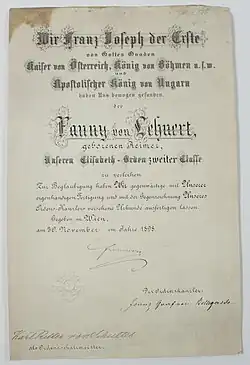 Wir Franz Joseph der Erste
von Gottes Gnaden
Kaiser von Österreich, König von Böhmen u.s.w.
und
Apostolischer König von Ungarn
haben Uns bewogen gefunden
der
Fanny von Lehnert,
geborenen Reimer,
Unseren Elisabeth-Orden zweiter Classe
zu verleihen
Zur Beglaubigung haben Wir gegenwärtige mit Unserer
eigenhändigen Fertigung und mit der Gegenzeichnung Unseres
Ordens-Kanzlers versehene Urkunde ausfertigen lassen.
Gegeben in Wien,
am 30. November im Jahre 1898.
Der Ordenskanzler:
als Ordens-Schatzmeister.